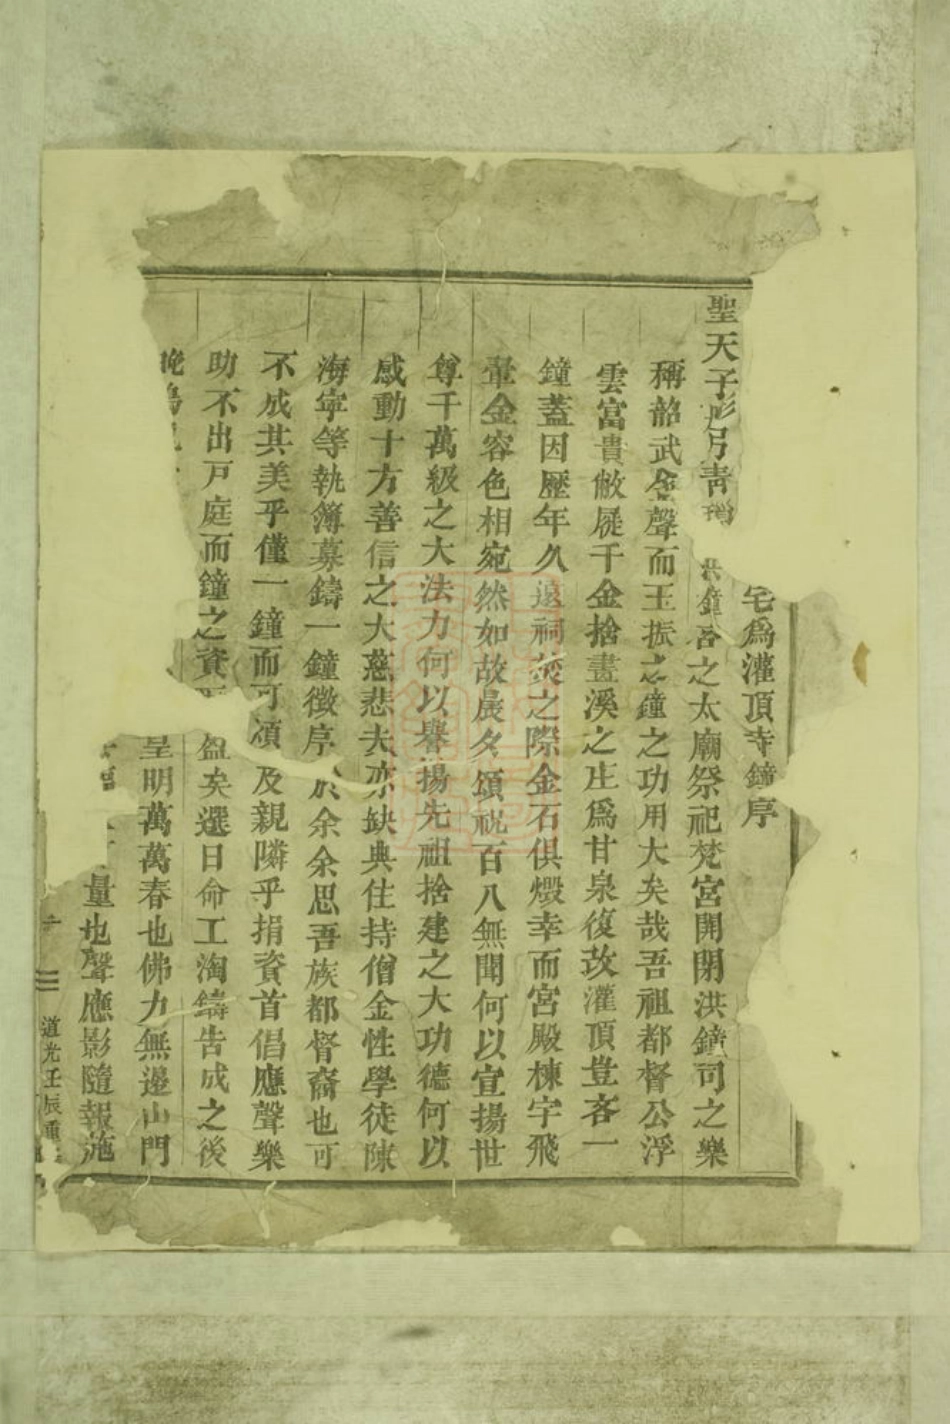 宅爲灌頂寺鐘序
聖天子彤弓靑 洪鐘吾之太廟祭祀梵宮開閉洪鐘司之樂
稱韶武金聲而玉振之鐘之功用大矣哉吾祖都督公浮
雲富貴敝屣千金捨晝溪之庄爲甘泉復改灌頂豈吝一
鐘蓋因歷年久遠祠燹之際金石俱燬幸而宮殿棟宇飛
翬金容色相宛然如故晨夕頌祝百八無聞何以宣揚世
尊千萬級之大法力何以譽揚先祖捨建之大功德何以
感動十方善信之大慈悲夫亦缺典住持僧金性學徒陳
海寜等執簿募鑄一鐘徵序於余余思吾族都督裔也可
不成其美乎僅一鐘而可須及親隣乎捐資首倡應聲樂
助不出戸庭而鐘之資 盈矣選日命工淘鑄吿成之後
晚 呈明萬萬春也佛力無邊山門
量也聲應影隨報施
道光壬辰重